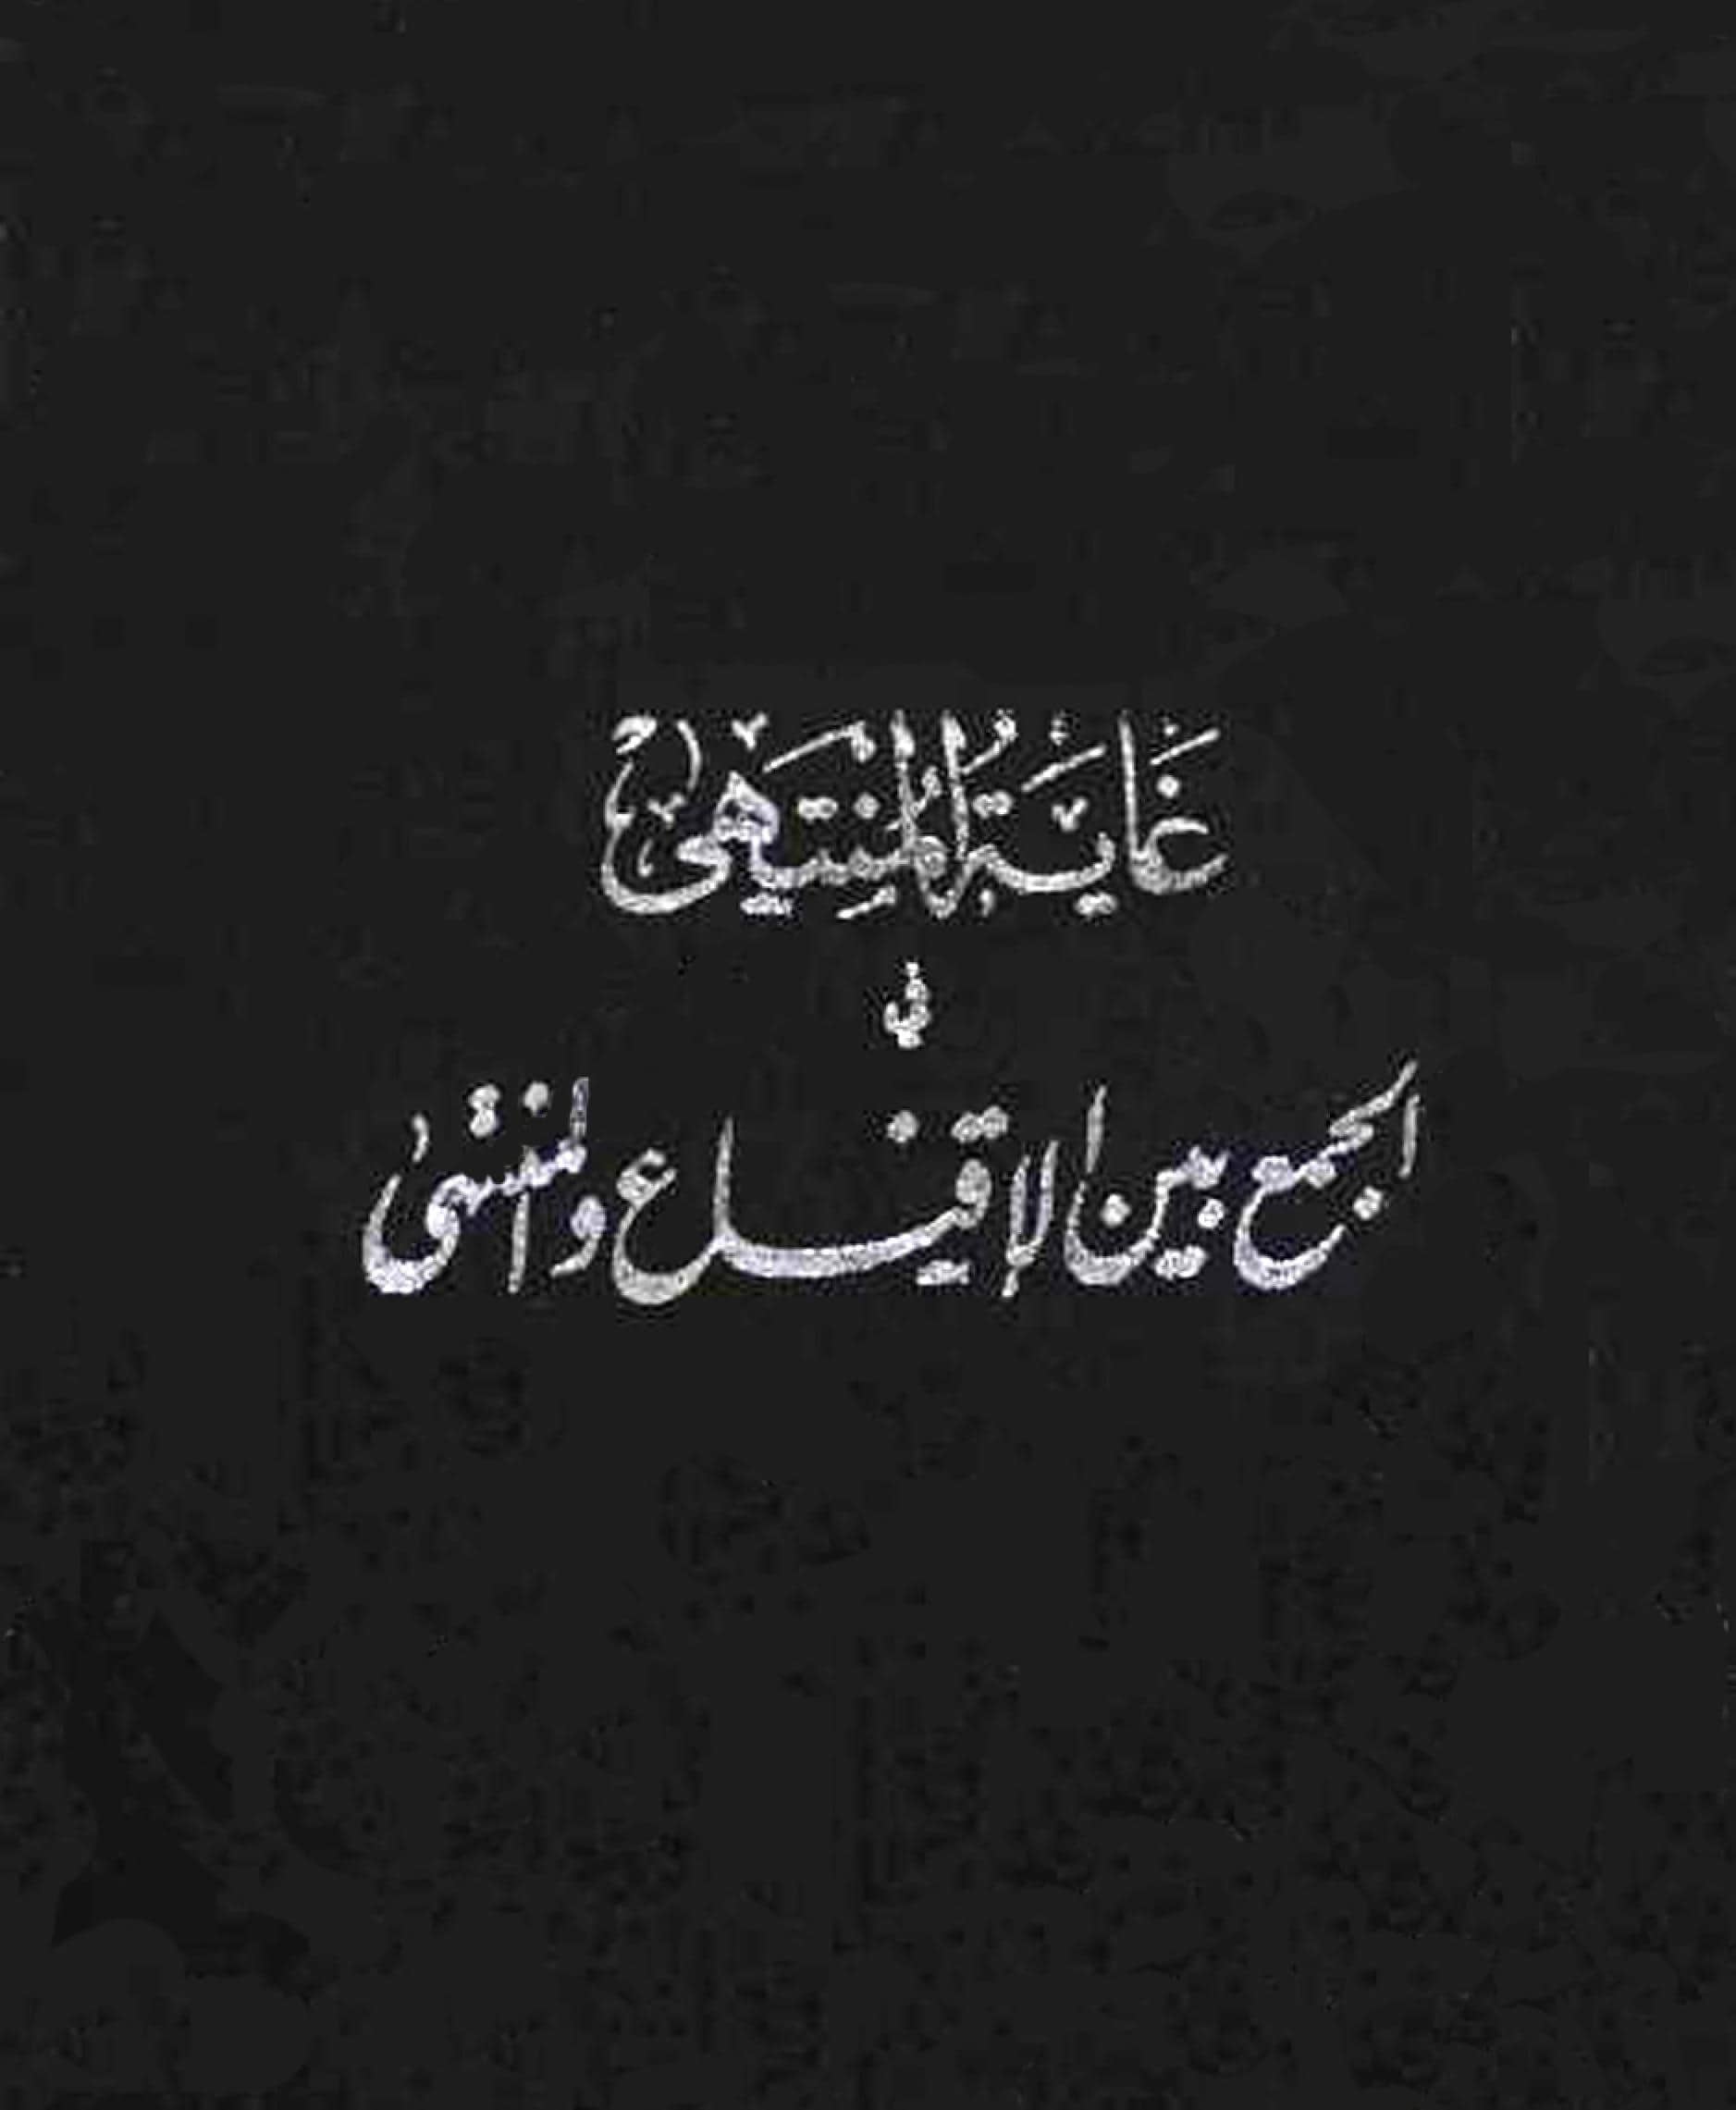 غَايَةُ المُنْتَهَى
في
الجمع بين الإقناع والمنتهى